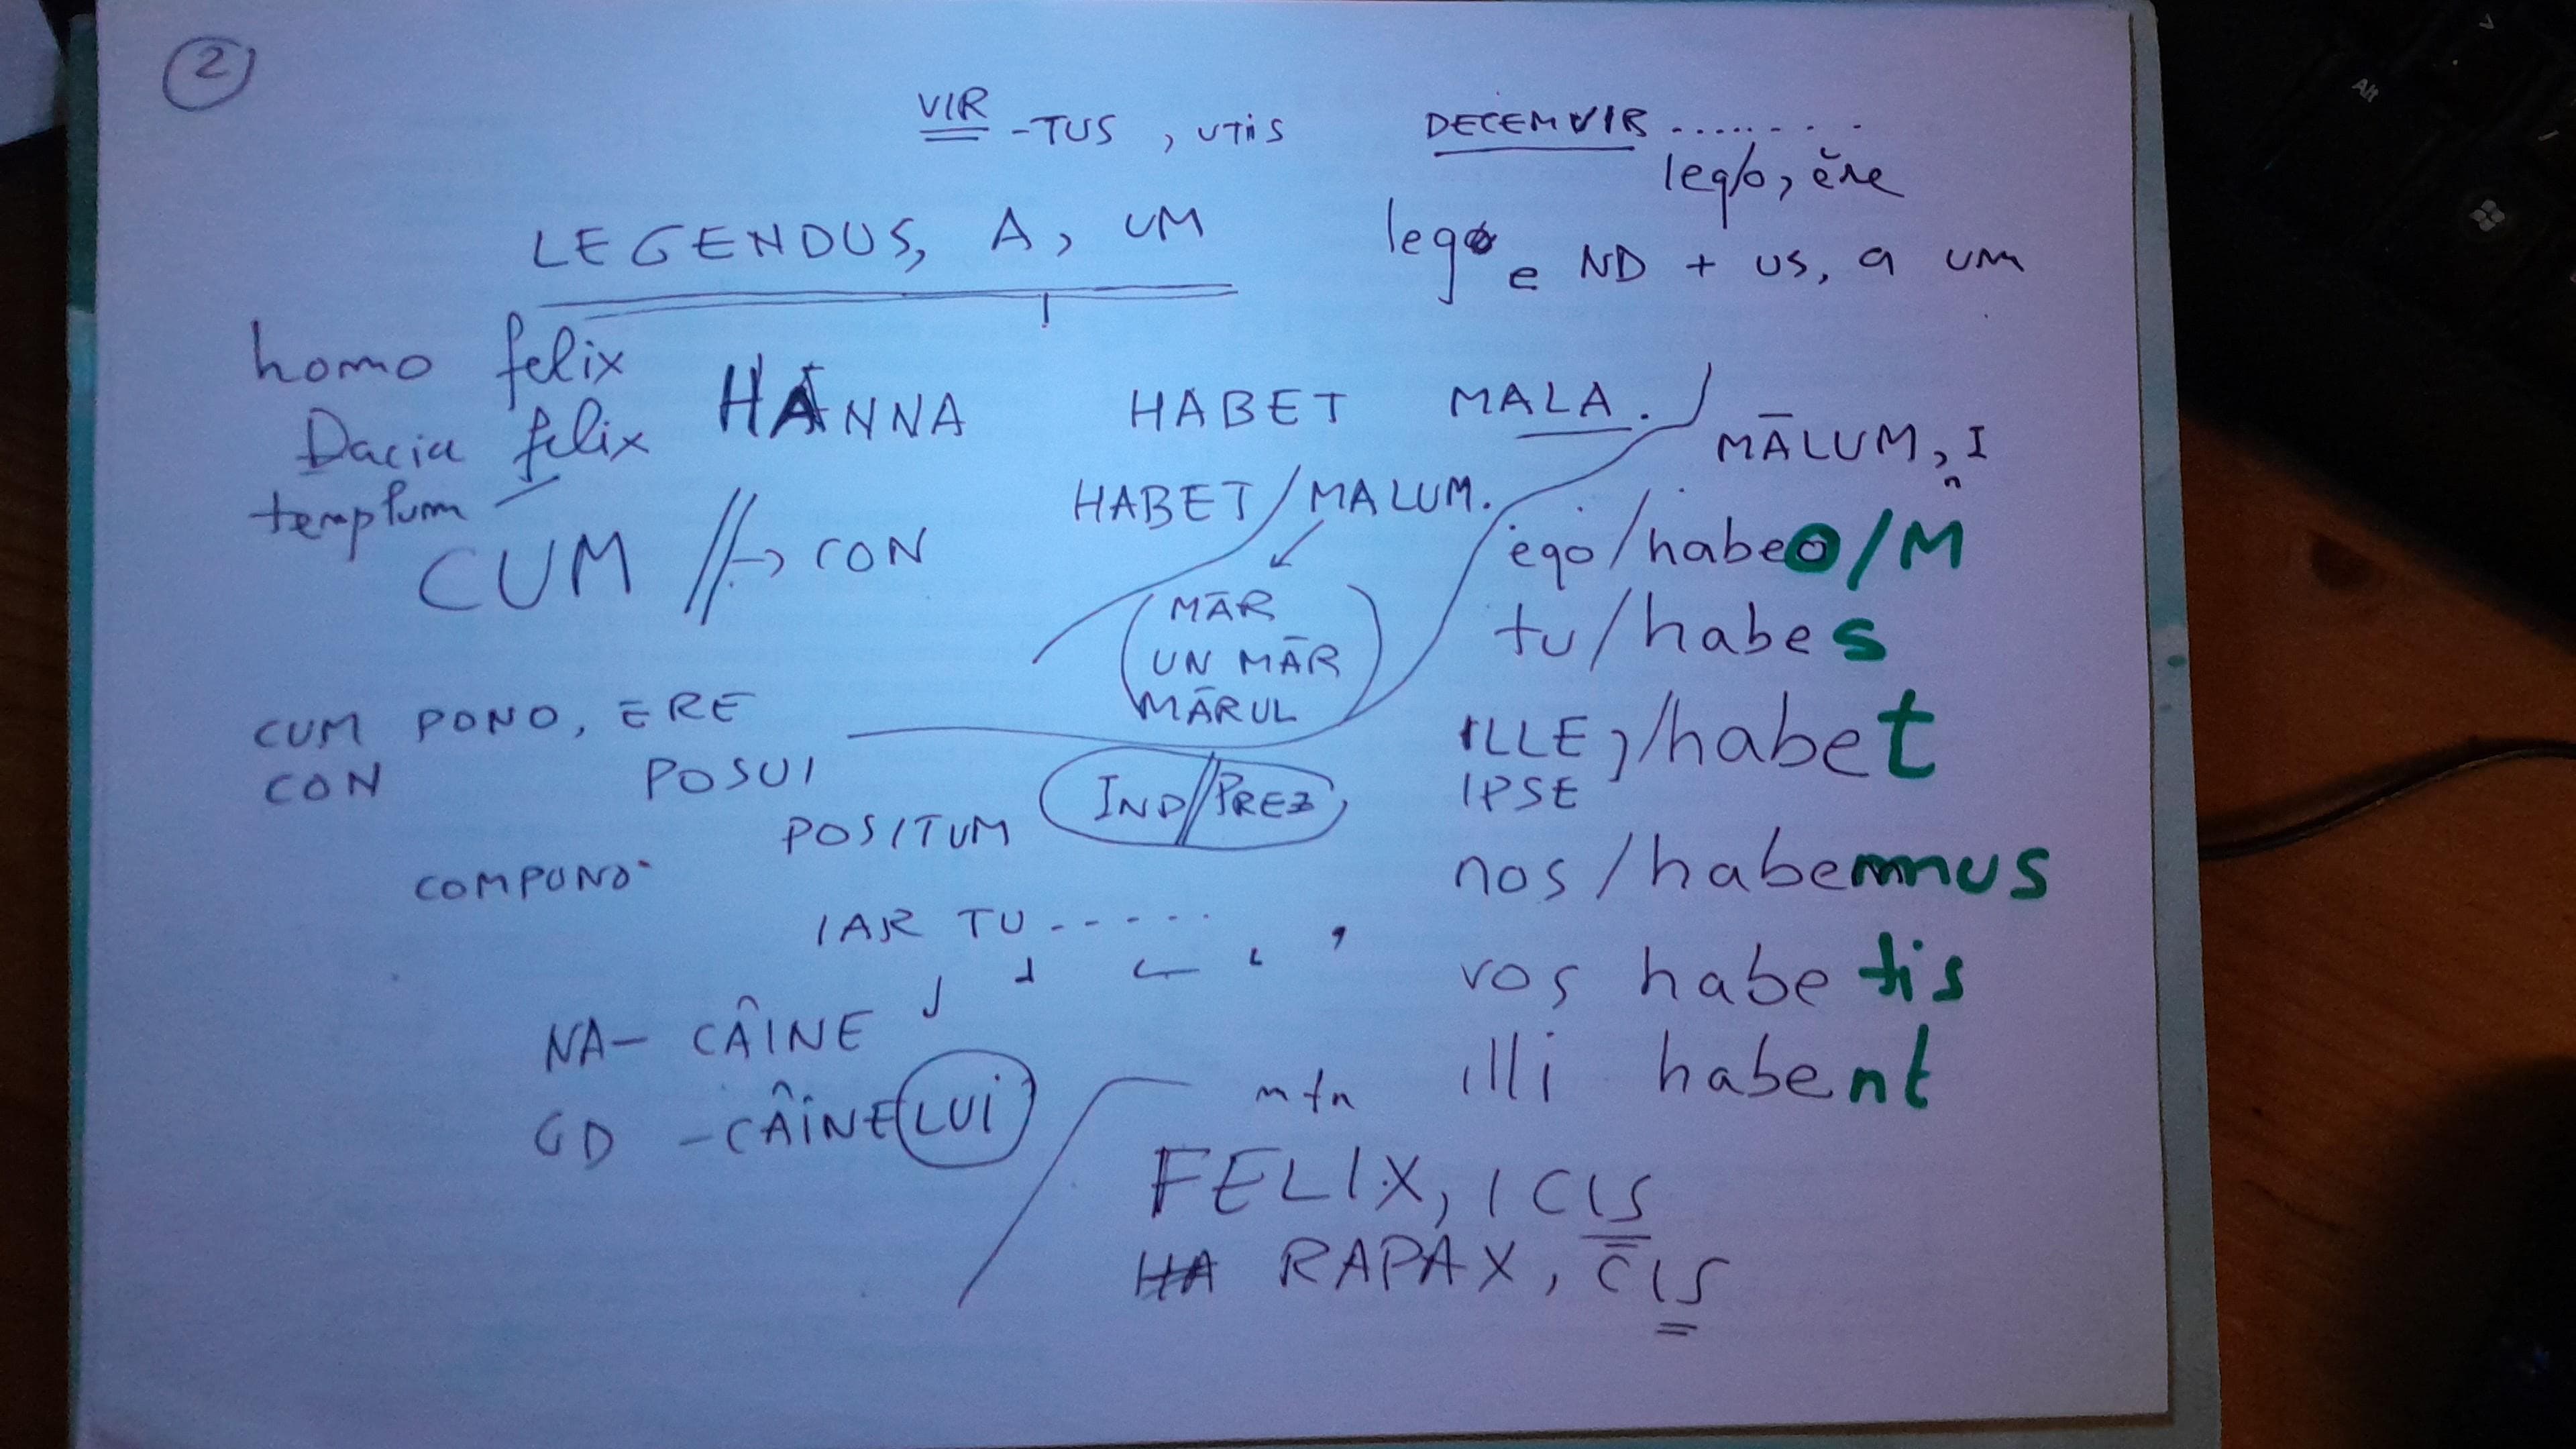 2
VIR -TUS, UTIS
DECEMVIR........
leg/o, ĕre
LEGENDUS, A, UM
lego e ND + US, a um
homo felix
Dacia felix
templum
HANNA HABET MALA.
MĀLUM, I
n
HABET/MALUM.
CUM //→ CON
MĀR
UN MĀR
MĀRUL
ego/habeo/M
tu/habes
ILLE,/habet
IPSE
nos/habemus
vos habetis
illi habent
CUM PONO, ĔRE
CON POSUI
POSITUM
COMPONO
IND//PREZ
IAR TU.....
NA- CÂINE
GD -CÂINELUI
m f n
FELIX, ICIS
HA RAPAX, CIS